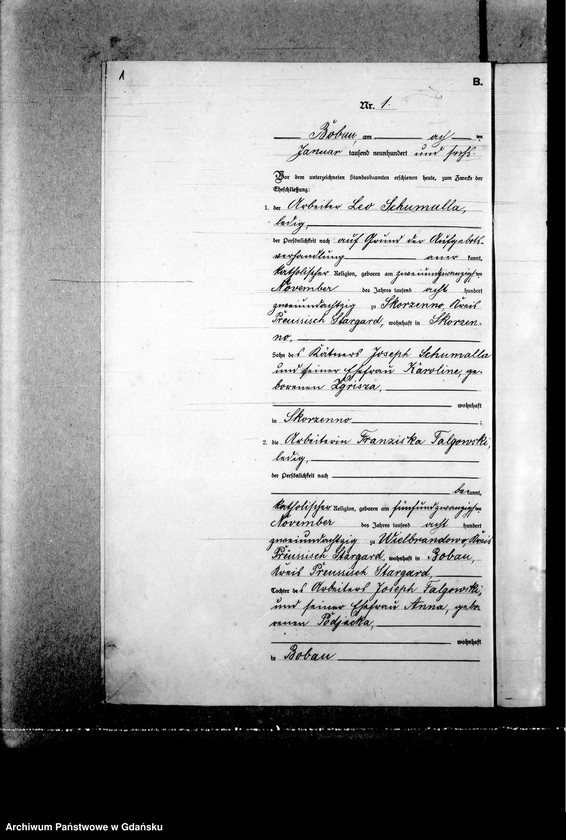 1
B.
Nr. 1.
Bobau, am acht ten
Januar tausend neunhundert und sechs
Vor dem unterzeichneten Standesbeamten erschienen heute, zum Zwecke der
Eheschließung:
1. der Arbeiter Leo Schumalla,
ledig,
der Persönlichkeit nach auf Grund der Aufgebots-
verhandlung aner kannt,
katholischer Religion, geboren am zweiundzwanzigsten
November des Jahres tausend acht hundert
zweiundachtzig zu Skorzenno, Kreis
Preussisch Stargard, wohnhaft in Skorzen-
no,
Sohn des Kätners Joseph Schumalla
und seiner Ehefrau Karoline, ge-
borenen Zgrisza,
wohnhaft
in Skorzenno ;
2. die Arbeiterin Franziska Talgowski,
ledig,
der Persönlichkeit nach
be kannt,
katholischer Religion, geboren am fünfundzwanzigsten
November des Jahres tausend acht hundert
zweiundachtzig zu Wielbrandowo, Kreis
Preussisch Stargard, wohnhaft in Bobau,
Kreis Preussisch Stargard,
Tochter des Arbeiters Joseph Talgowski,
und seiner Ehefrau Anna, gebo-
renen Pdjacka,
wohnhaft
in Bobau
Archiwum Państwowe w Gdańsku